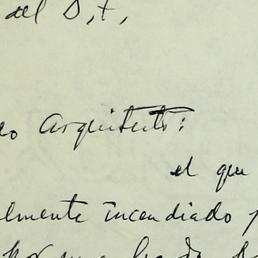 del D, f,
do Arquitecto:
el que
lmente incendiado p